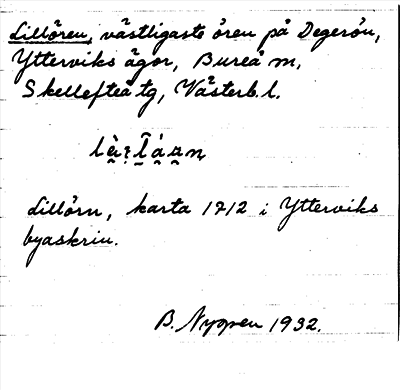 Lillören, västligaste ören på Degerön,
Ytterviks ägor, Bureå sn,
Skellefteå tg, Västerb. l.
Lillörn, karta 1712 i Ytterviks
byaskrin.
B. Nygren 1932.